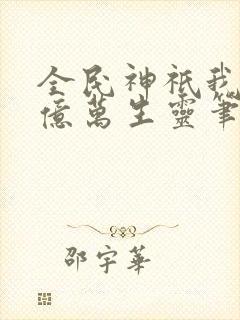 全民神祇我
億萬生靈筆
邵宇華